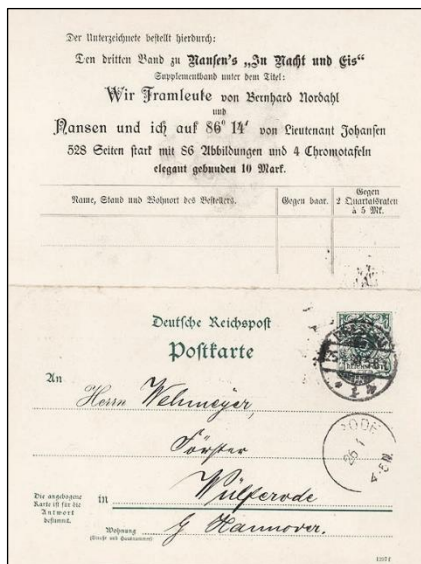 Der Unterzeichnete bestellt hierdurch:
Den dritten Band zu Nansen's „In Nacht und Eis“
Supplementband unter dem Titel:
Wir Framleute von Bernhard Nordahl
und
Nansen und ich auf 86° 14' von Lieutenant Johansen
528 Seiten stark mit 86 Abbildungen und 4 Chromotafeln
elegant gebunden 10 Mark.
Name, Stand und Wohnort des Bestellers.
Gegen baar.
Gegen
2 Quartalsraten
à 5 Mk.
Deutsche Reichspost
Postkarte
An
Herrn Wehmeyer,
Förster
in Wülferode
Wohnung
(Straße und Hausnummer)
b/ Hannover.
Die angebogene
Karte ist für die
Antwort
bestimmt.
26 1
4-5N.